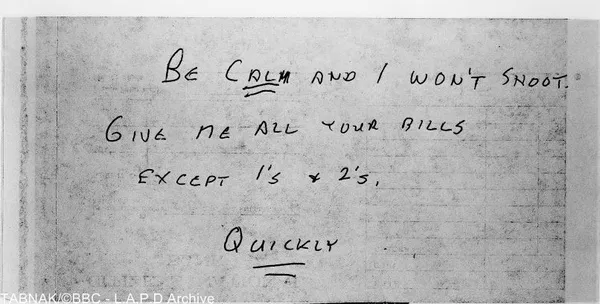 BE CALM AND I WON'T SHOOT.
GIVE ME ALL YOUR BILLS
EXCEPT 1'S & 2'S.
QUICKLY
TABNAK/©BBC - L.A.P.D Archive